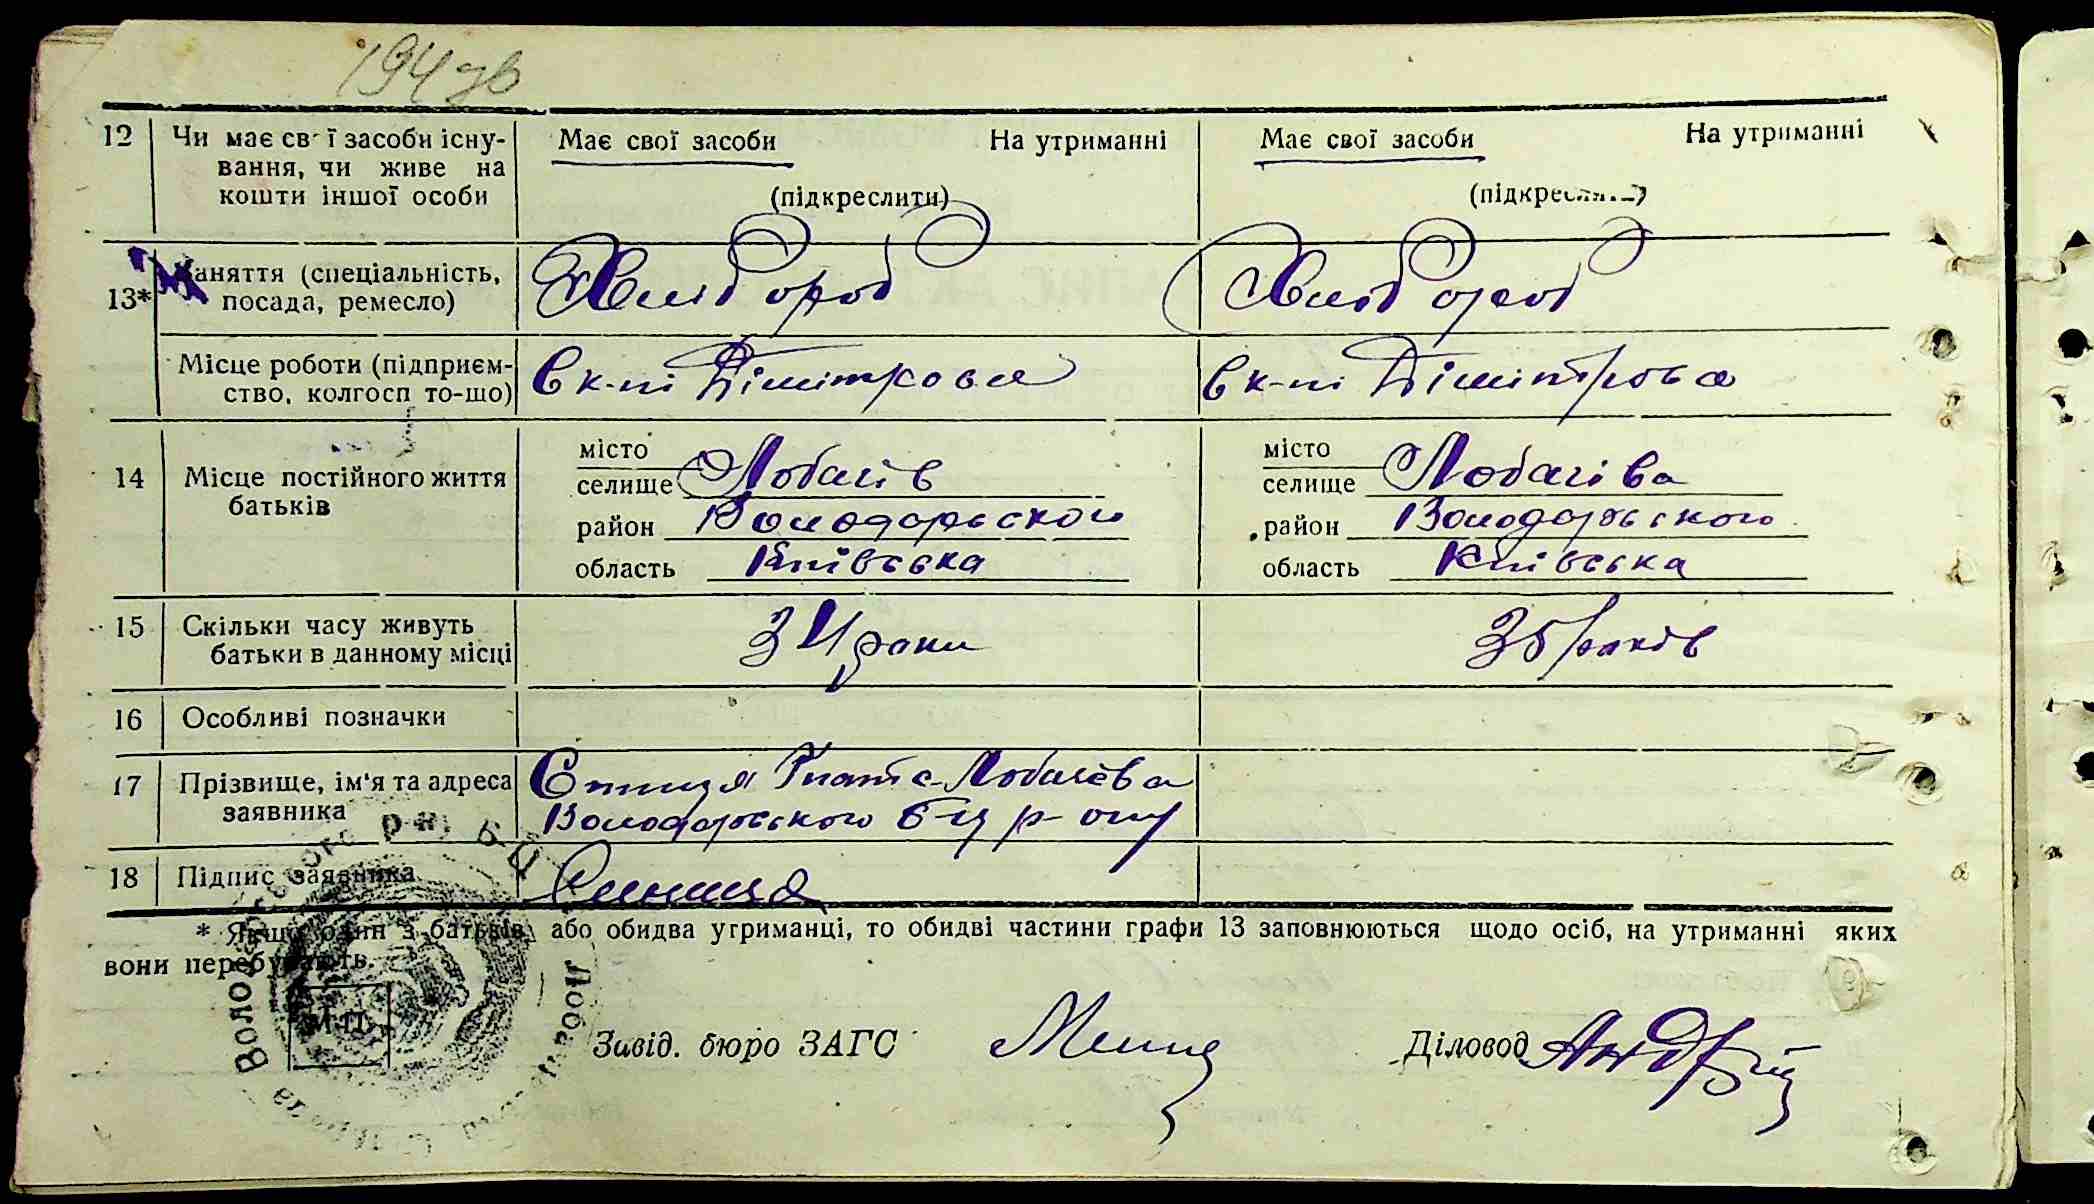 194 зв
12 Чи має св ї засоби існу- Має свої засоби На утриманні Має свої засоби На утриманні
вання, чи живе на
кошти іншої особи (підкреслити) (підкреслити)
13* Заняття (спеціальність, Хлібороб Хлібороб
посада, ремесло)
Місце роботи (підприєм- В к-пі Дімітрова В к-пі Дімітрова
ство, колгосп то-що)
місто місто
14 Місце постійного життя селище Лобачів селище Лобачіва
батьків район Володарського район Володарського
область Київська область Київська
15 Скільки часу живуть 34 роки 35 років
батьки в данному місці
16 Особливі позначки
17 Прізвище, ім'я та адреса Гнат с-Лобачева
заявника Володарського Б-Ц р-
18 Підпис заявника
* Якщо один з батьків, або обидва утриманці, то обидві частини графи 13 заповнюються щодо осіб, на утриманні яких
вони перебувають.
М.П.
Завід. бюро ЗАГС Діловод